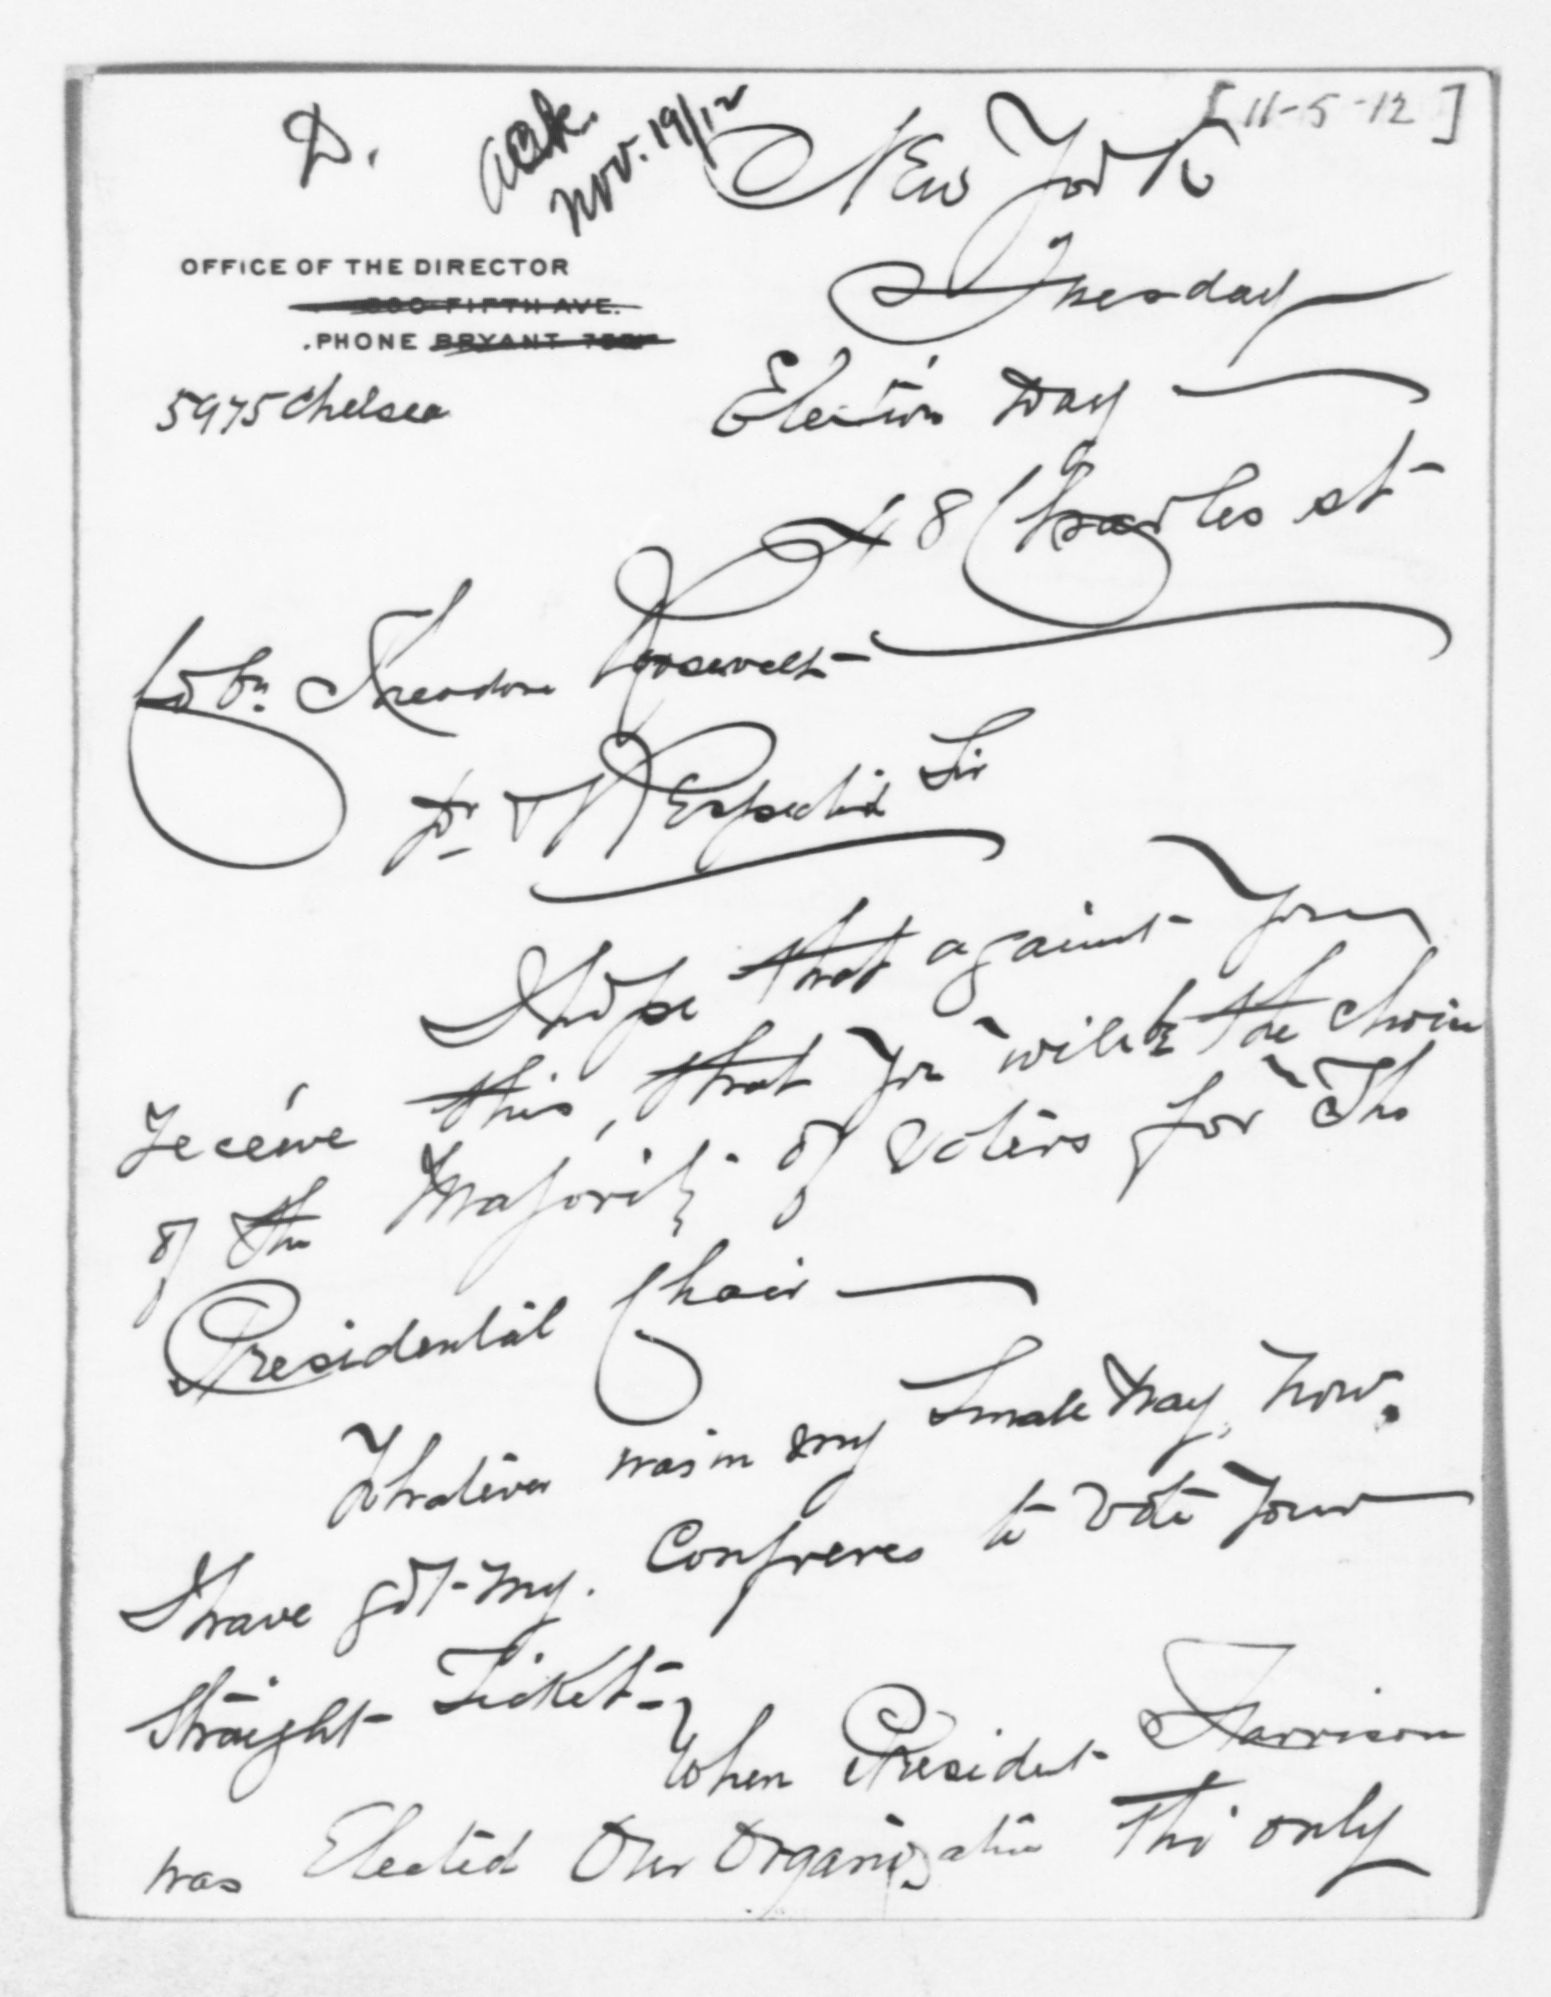 D.
ack.
Nov. 19/12
[11-5-12]
New York
Tuesday
OFFICE OF THE DIRECTOR
FIFTH AVE.
PHONE BRYANT
5975 Chelsea
Election Day
48 Charles st
Theodore Roosevelt
Dr Respected Sir
I hope that against you
receive this, that you will be the choice
of the Majority of Voters for The
Presidential Chair
Whatever was in my small way, now.
I have got my. Confreres to vote your
straight Ticket
When President Harrison
was Elected Our Organization The only